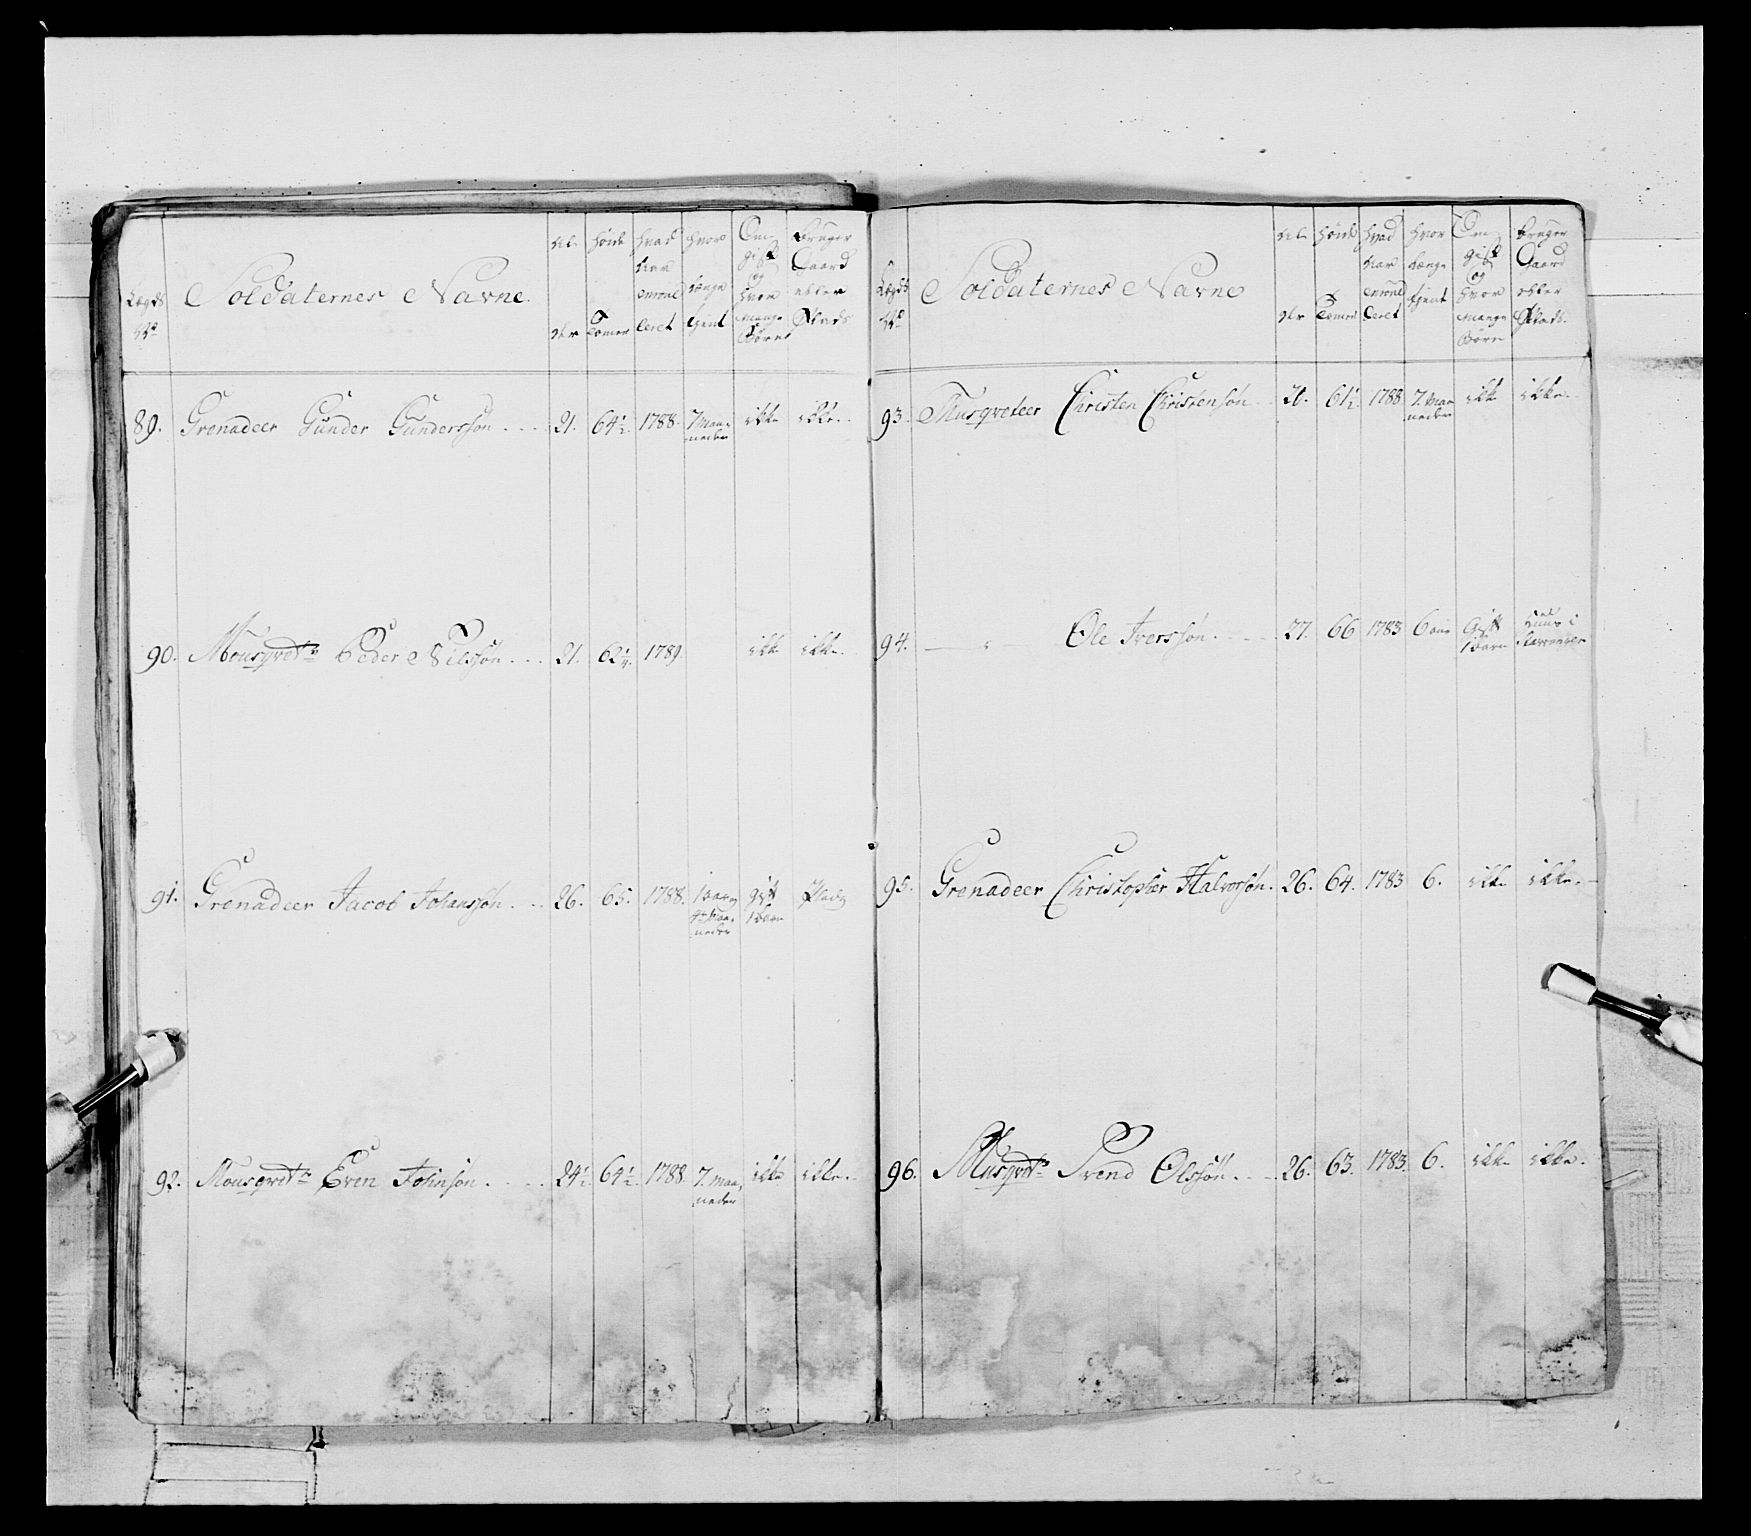 Lægds No
Soldaternes Navne
Al der
Høide Tomer
Hvad Aar enroul leret
Hvor længe tjent
Om gift og Hvor mange Børn
Bruger Gaard eller Plads
89. Grenadeer Gunder Gundersøn 21. 64½ 1788. 7 Maa neder ikke ikke.
90. Mousqvetr Peder Nilssøn 21. 62¼ 1789. ikke ikke.
91. Grenadeer Jacob Johanssøn 26. 65. 1788. 1 Aar og 4 Maa neder gift 1 Barn Plads
92. Mousqvetr Even Johnsøn 24½ 64½ 1788. 7. Maa neder ikke ikke.
Lægds No
Soldaternes Navne
Al der
Høide Tomer
Hvad Aar enroul leret
Hvor længe tjent
Om gift og Hvor mange Børn
Bruger Gaard eller Plads.
93. Musqveteer Christen Christensøn 20. 61½ 1788 7. Maa neder ikke ikke.
94. — " Ole Iverssøn. 27. 66 1783 6 Gift 1 Barn Huus i
95. Grenadeer Christopher Halvorsøn. 26. 64. 1783 6. ikke ikke.
96. Musqvetr Svend Olssøn 26. 63. 1783. 6. ikke ikke.